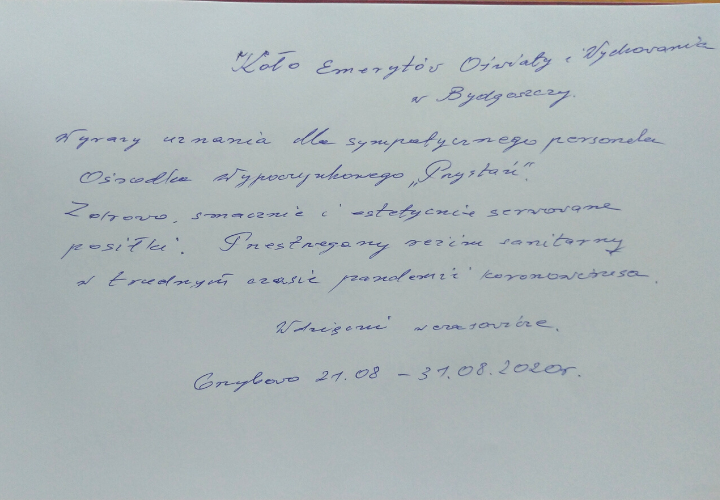 Koło Emerytów Oświaty i Wychowania
w Bydgoszczy.
Wyrazy uznania dla sympatycznego personelu
Ośrodka Wypoczynkowego „Przystań”.
Zdrowo, smacznie i estetycznie serwowane
posiłki. Przestrzegany reżim sanitarny
w trudnym czasie pandemii koronowirusa.
Wdzięczni wczasowicze.
Grzybowo 21.08 – 31.08.2020r.